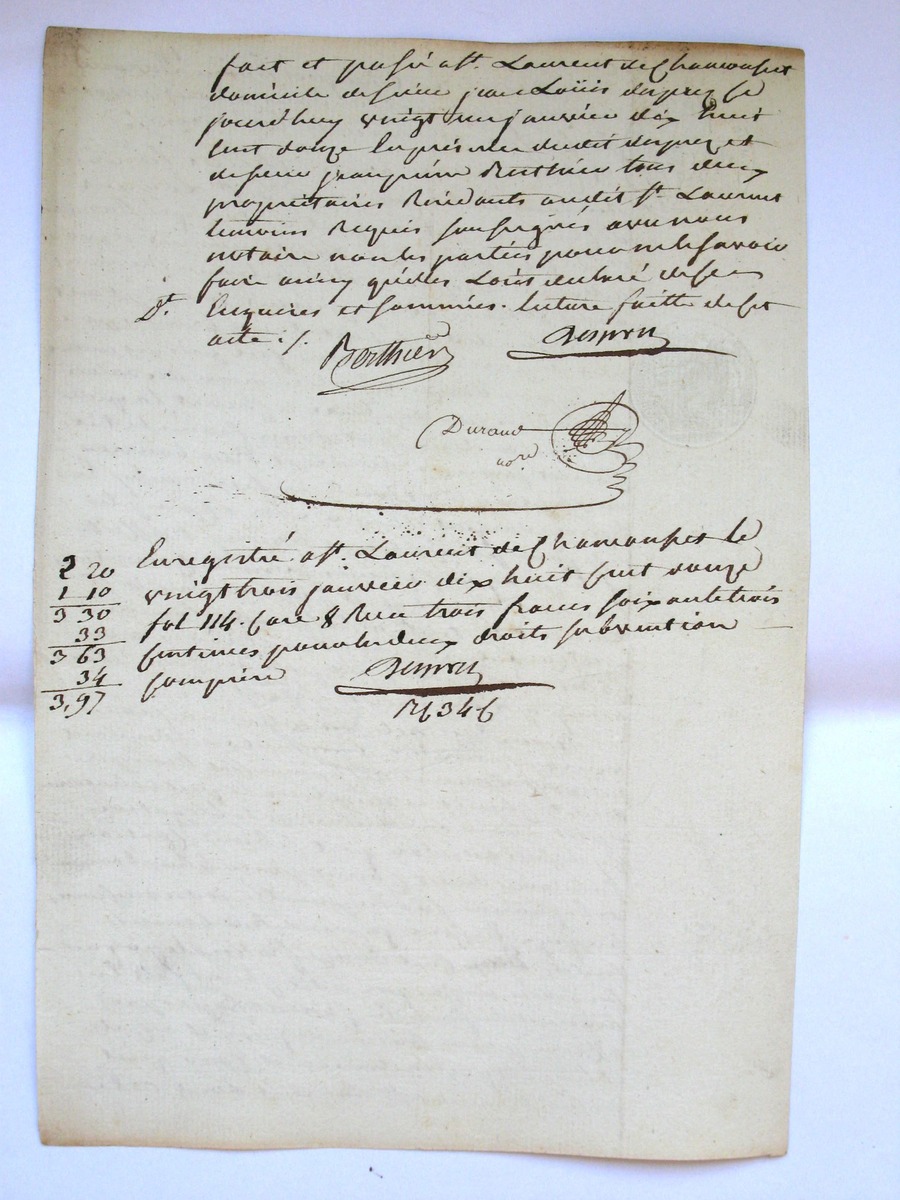 fait et passé a st. Laurent de Chamousset
domicile de sieur jean Loüis duprez ce
jourd'huy vingt un janvier dix huit
cent douze En présence dudit duprez et
de sieur jean pierre Berthier tous deux
propriétaires Résidants audit st. Laurent
temoins Requis soussignés avec nous
notaire non les parties pour ne le savoir
faire ainsy qu'elles L'ont declaré de ce
Dt. Enquises et sommées. lecture faitte de cet
acte ./.
Berthier
Duprez
Durand
nore
Enregistré a st. Laurent de Chamousset le
vingt trois janvier dix huit cent douze
fol 114. Case 8 Reçu trois francs soixante trois
centimes pour les deux droits subvention
comprise
Duprez
2 20
1 10
3 30
33
3 63
34
3,97